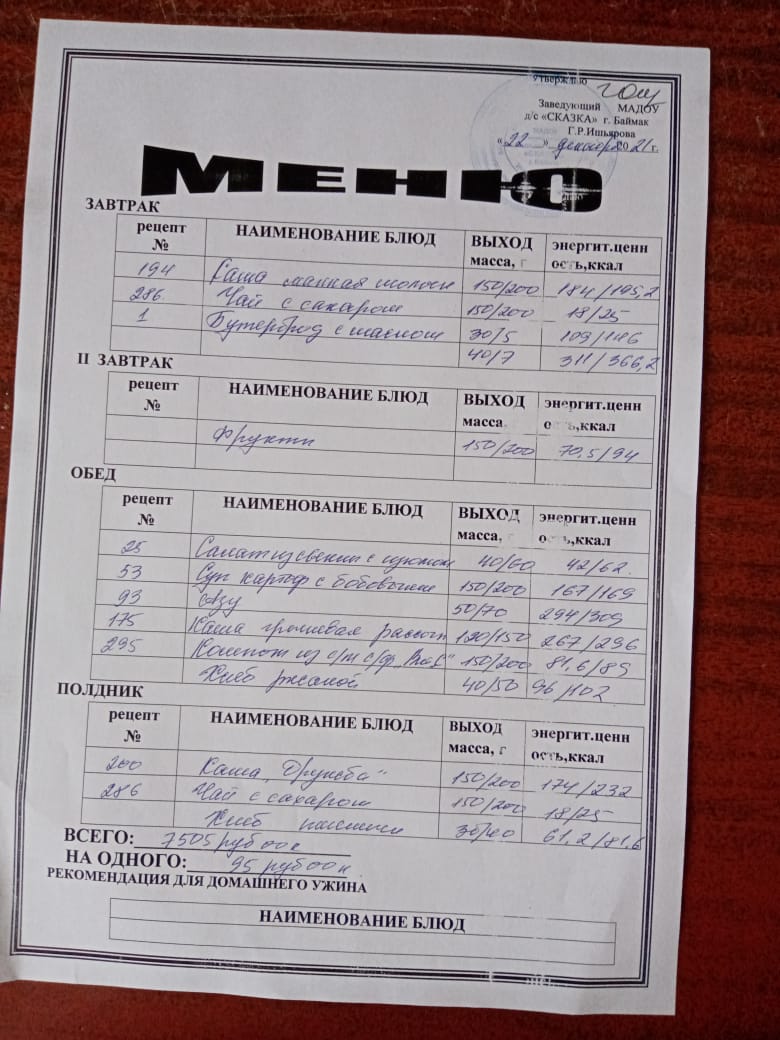 Утверждаю
Заведующий МАДОУ
д/с «СКАЗКА» г. Баймак
Г.Р.Ишьярова
«22» декабря 2021 г.
МЕНЮ
ЗАВТРАК
рецепт № НАИМЕНОВАНИЕ БЛЮД ВЫХОД масса, г энергит.ценность,ккал
194 Каша манная молочн 150/200 184/195,2
286. Чай с сахаром 150/200 18/25
1 Бутерброд с маслом 30/5 109/146
40/7 311/366,2
II ЗАВТРАК
рецепт № НАИМЕНОВАНИЕ БЛЮД ВЫХОД масса, энергит.ценность,ккал
Фрукты 150/200 70,5/94
ОБЕД
рецепт № НАИМЕНОВАНИЕ БЛЮД ВЫХОД масса, г энергит.ценность,ккал
25 Салат из свеклы с изюмом 40/60 42/62.
53 Суп картоф с бобовыми 150/200 167/169
93 Азу 50/70 294/309
175 Каша гречневая рассып 120/150 267/296
295 Компот из с/м с/ф "Вит С" 150/200 81,6/89
Хлеб ржаной 40/50 96/102
ПОЛДНИК
рецепт № НАИМЕНОВАНИЕ БЛЮД ВЫХОД масса, г энергит.ценность,ккал
200 Каша "Дружба" 150/200 174/232
286 Чай с сахаром 150/200 18/25
Хлеб пшенич 30/40 61,2/81,6
ВСЕГО: 7505 руб 00 к
НА ОДНОГО: 95 руб 00 к.
РЕКОМЕНДАЦИЯ ДЛЯ ДОМАШНЕГО УЖИНА
НАИМЕНОВАНИЕ БЛЮД